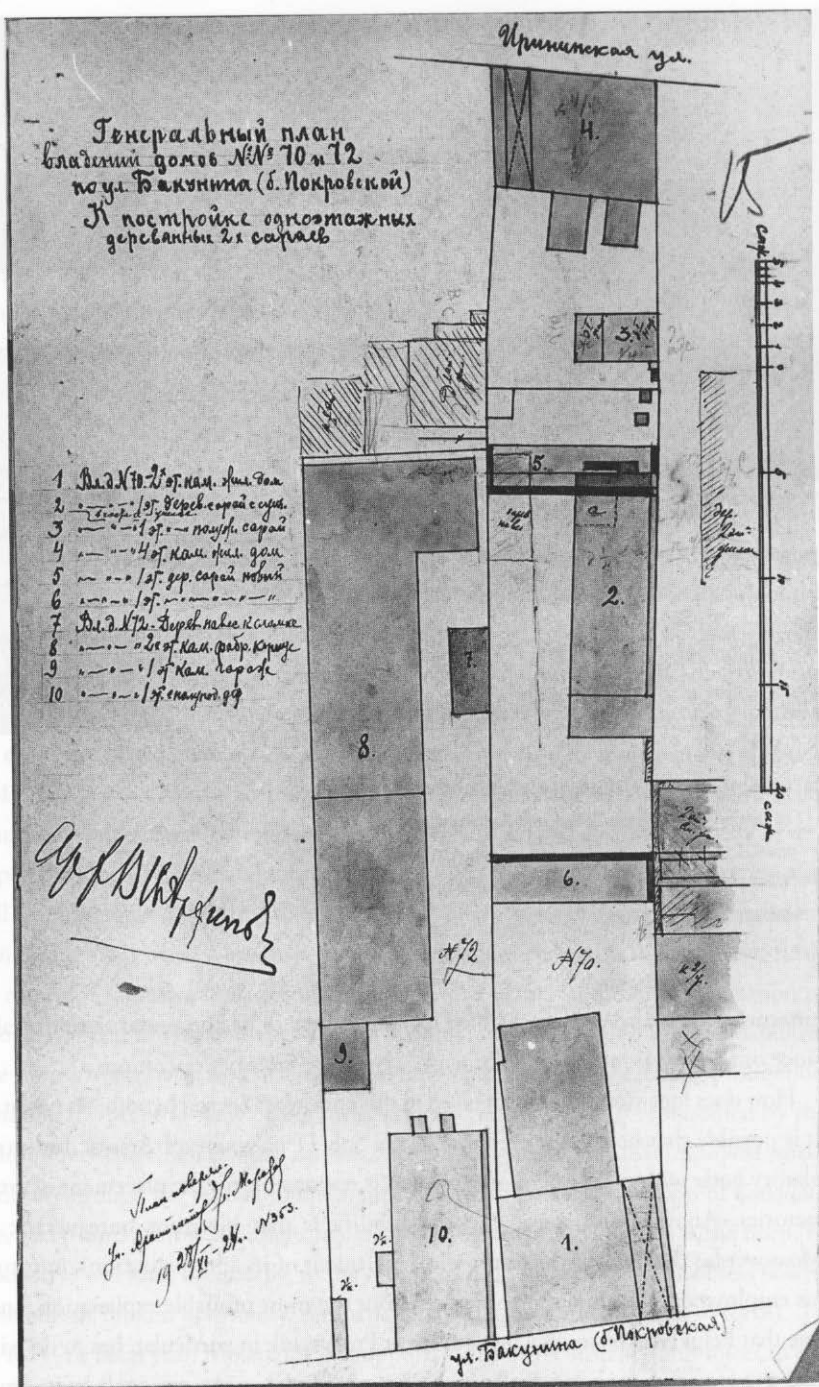 Ирининская ул.
Генеральный план
владений домов №№ 70 и 72
по ул. Бакунина (б. Покровской)
К постройке одноэтажных
деревянных 2х сараев
4.
саж
5
4
3
2
1
0
5
10
15
20
саж
3.
5.
а
2.
дер.
1 Вл. д. N 70 - 2х эт. кам. жил. дом
2 " " " 1 эт. дерев. сарай с суш.
3 " " " 1 эт. " " полуж. сарай
4 " " " 4 эт. кам. жил. дом
5 " " " 1 эт. дер. сарай новый
6 " " " 1 эт. " " "
7 Вл. д. N 72 - Дерев. навес
8 " " " 2х эт. кам. фабр. корпус
9 " " " 1 эт. кам. гараж
10 " " " 1 эт.
7.
8.
6.
N 72
N 70.
к 2/ж
9.
План поверен.
Уч. Архитектор
19 28/XI - 24 г. N 353.
10.
1.
ул. Бакунина (б. Покровская)